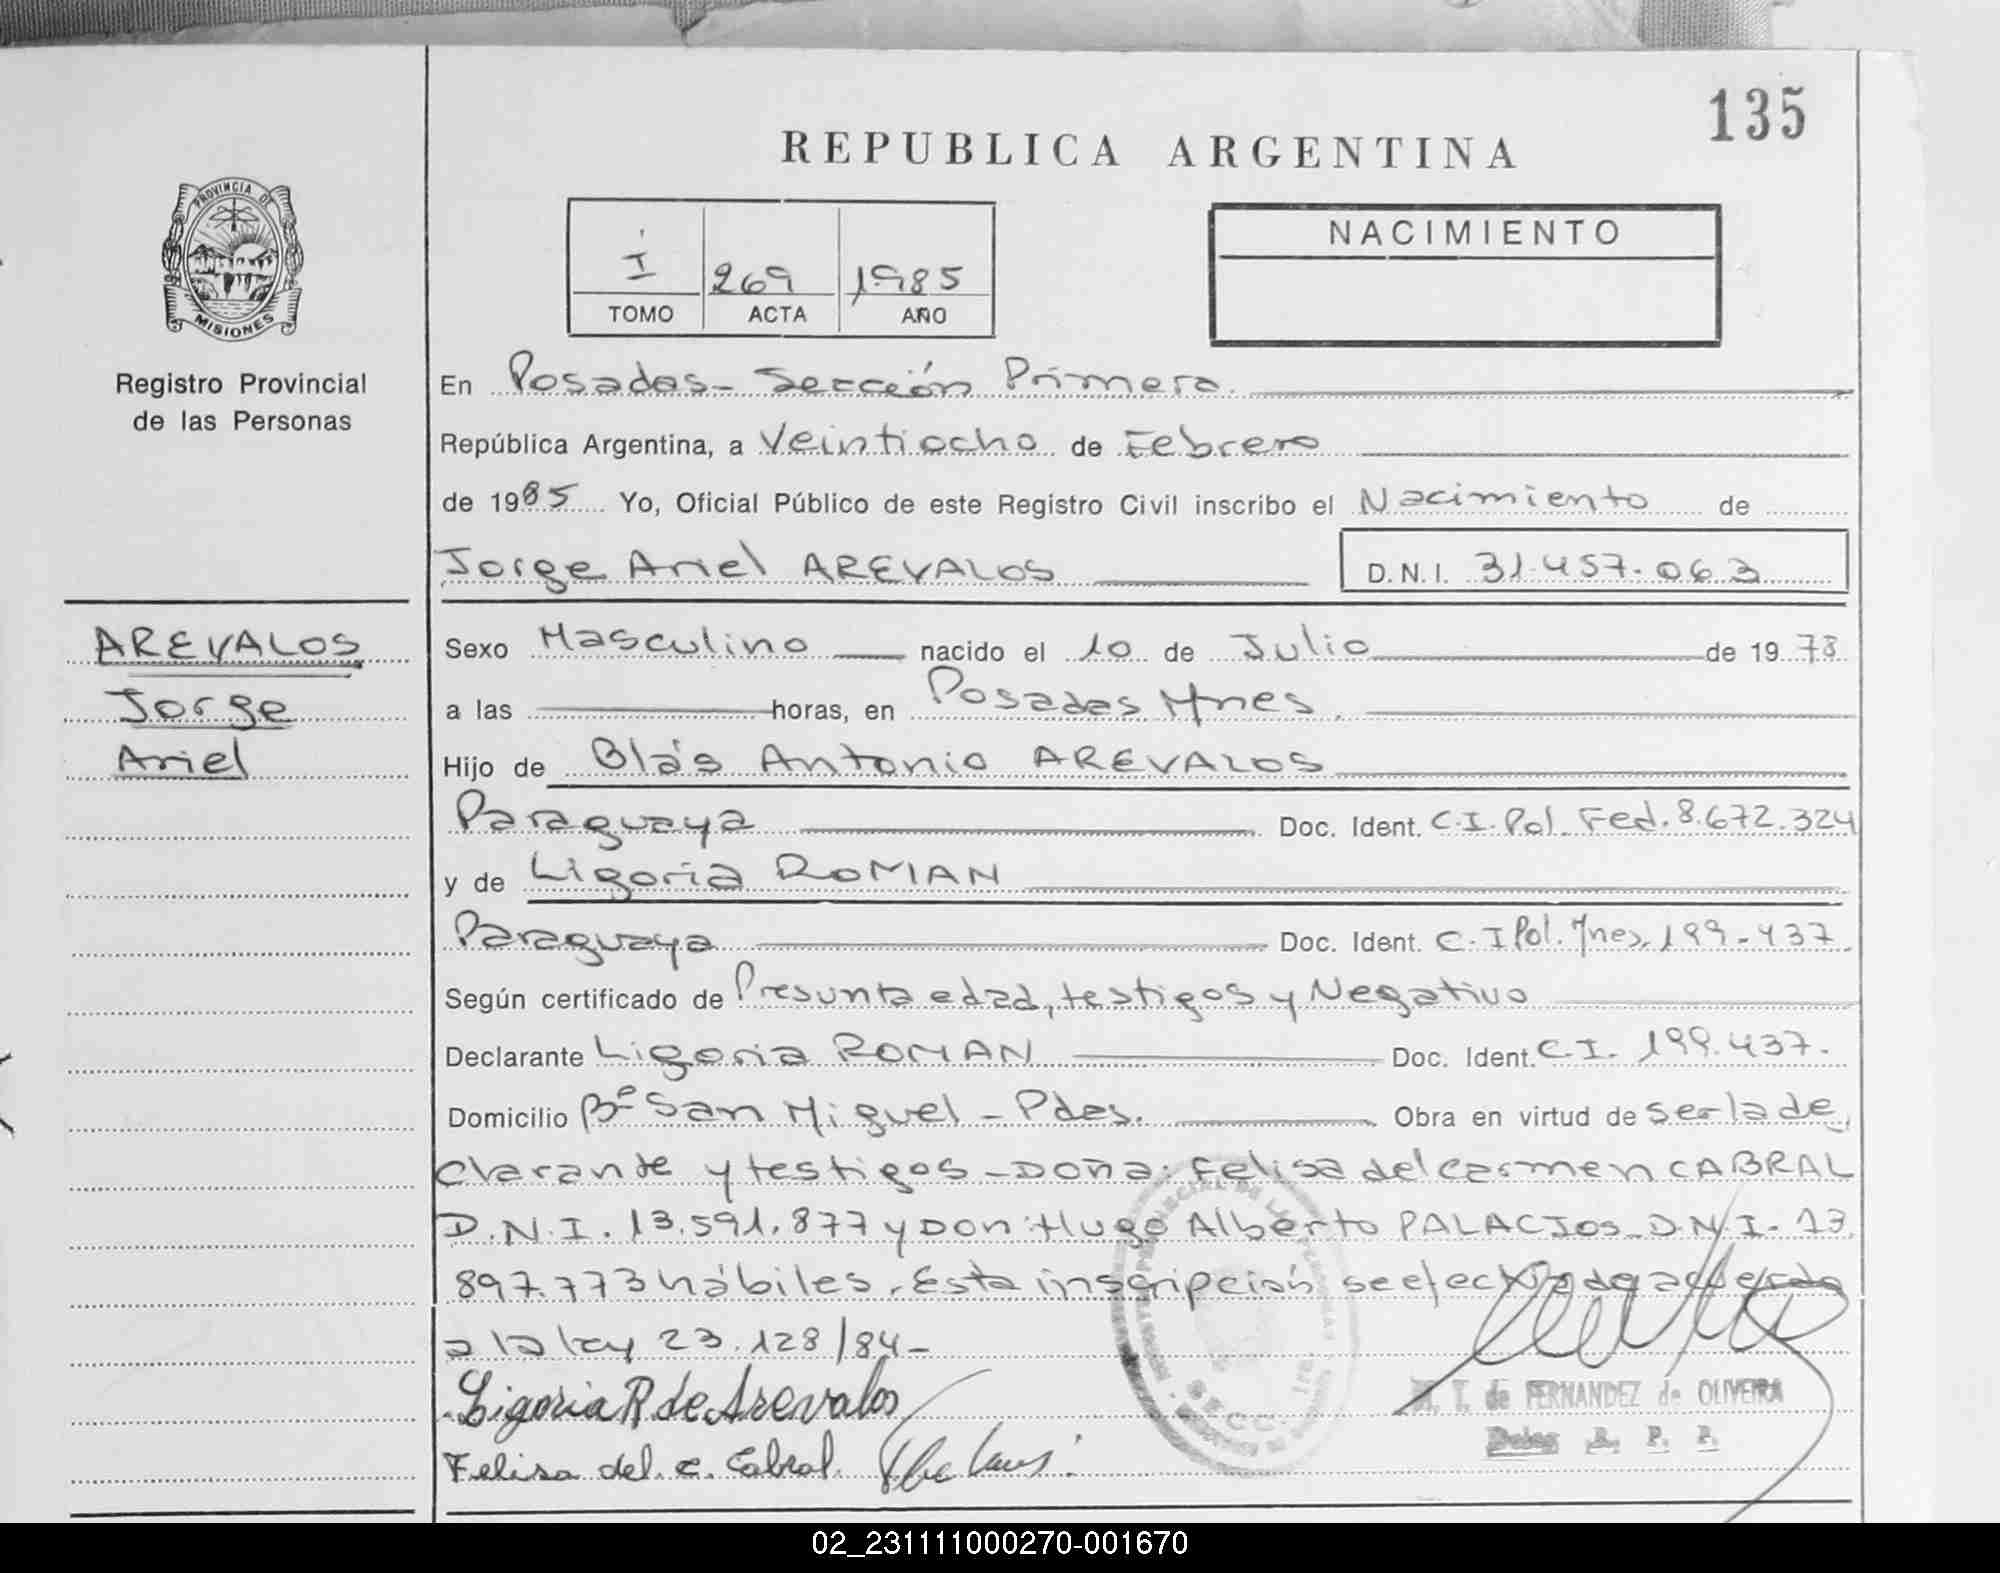 135
REPUBLICA ARGENTINA
PROVINCIA DE
MISIONES
I 269 1985
TOMO ACTA AÑO
NACIMIENTO
Registro Provincial
de las Personas
En Posadas- Sección Primera.
República Argentina, a Veintiocho de Febrero
de 1985 Yo, Oficial Público de este Registro Civil inscribo el Nacimiento de
Jorge Ariel AREVALOS D.N.I. 31.457.063
AREVALOS
Jorge
Ariel
Sexo Masculino nacido el 10 de Julio de 1978
a las horas, en Posadas Mnes.
Hijo de Blás Antonio AREVALOS
Paraguaya Doc. Ident. C.I. Pol. Fed. 8.672.324
y de Ligoria ROMAN
Paraguaya Doc. Ident. C.I Pol. Mnes. 199.437
Según certificado de Presunta edad, testigos y Negativo
Declarante Ligoria ROMAN Doc. Ident. C.I. 199.437.
Domicilio Bº San Miguel - Pdas. Obra en virtud de ser la de
clarante y testigos - Doña: Felisa del Carmen CABRAL
D.N.I. 13.591.877 y Don: Hugo Alberto PALACIOS - D.N.I. 13.
897.773 hábiles. Esta inscripción se efectúa de acuerdo
a la ley 23.128/84-
Ligoria R de Arevalos
Felisa del. C. Cabral.
M. T. de FERNANDEZ de OLIVEIRA
Deleg R. P. P.
02_231111000270-001670